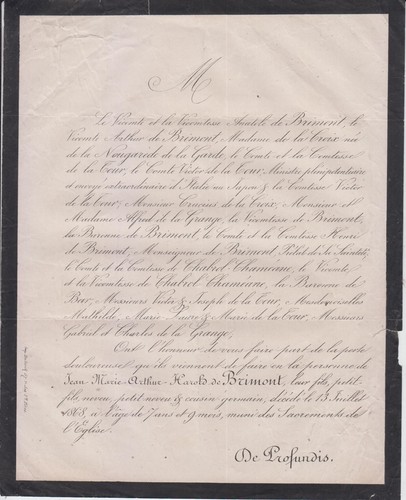 M
Le Vicomte et la Vicomtesse Anatole de Brimont, le
Vicomte Arthur de Brimont, Madame de la Croix née
de la Nougarede de la Garde, le Comte et la Comtesse
de la Tour, le Comte Victor de la Tour, Ministre plénipotentiaire
et envoyé extraordinaire d'Italie au Japon & la Comtesse Victor
de la Tour, Monsieur de la Croix, Monsieur et
Madame Alfred de la Grange, la Vicomtesse de Brimont,
la Baronne de Brimont, le Comte et la Comtesse Henri
de Brimont, Monseigneur de Brimont Prélat de Sa Sainteté,
le Comte et la Comtesse de Chabrol-Chaméane, le Vicomte
et la Vicomtesse de Chabrol-Chaméane, la Baronne de
Messieurs Victor & Joseph de la Tour, Mesdemoiselles
Mathilde, Marie & Marie de la Tour, Messieurs
Gabriel et Charles de la Grange;
Ont l'honneur de vous faire part de la perte
douloureuse qu'ils viennent de faire en la personne de
Jean-Marie-Arthur-Harold de Brimont, leur fils, petit
fils, neveu, petit neveu & cousin-germain, décédé le 13 Juillet
1868, à l'âge de 7 ans et 9 mois, muni des Sacrements de
l'Église.
De Profundis.